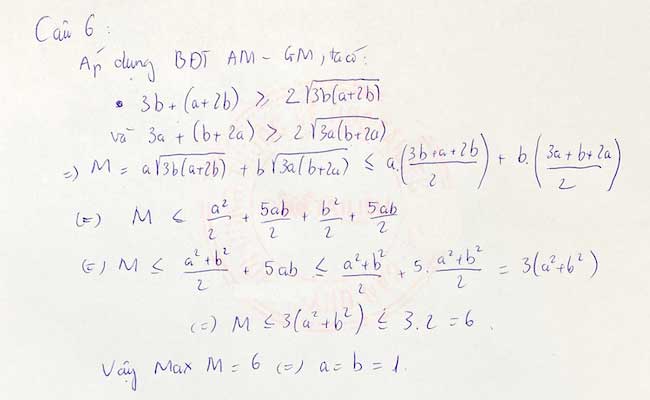 Câu 6:
Áp dụng BĐT AM - GM, ta có:
• 3b + (a+2b) ≥ 2√3b(a+2b)
và 3a + (b+2a) ≥ 2√3a(b+2a)
=> M = a√3b(a+2b) + b√3a(b+2a) ≤ a.(3b+a+2b/2) + b.(3a+b+2a/2)
(=) M ≤ a²/2 + 5ab/2 + b²/2 + 5ab/2
(=) M ≤ a²+b²/2 + 5ab ≤ a²+b²/2 + 5.a²+b²/2 = 3(a²+b²)
(=) M ≤ 3(a²+b²) ≤ 3.2 = 6.
Vậy Max M = 6 (=) a = b = 1.